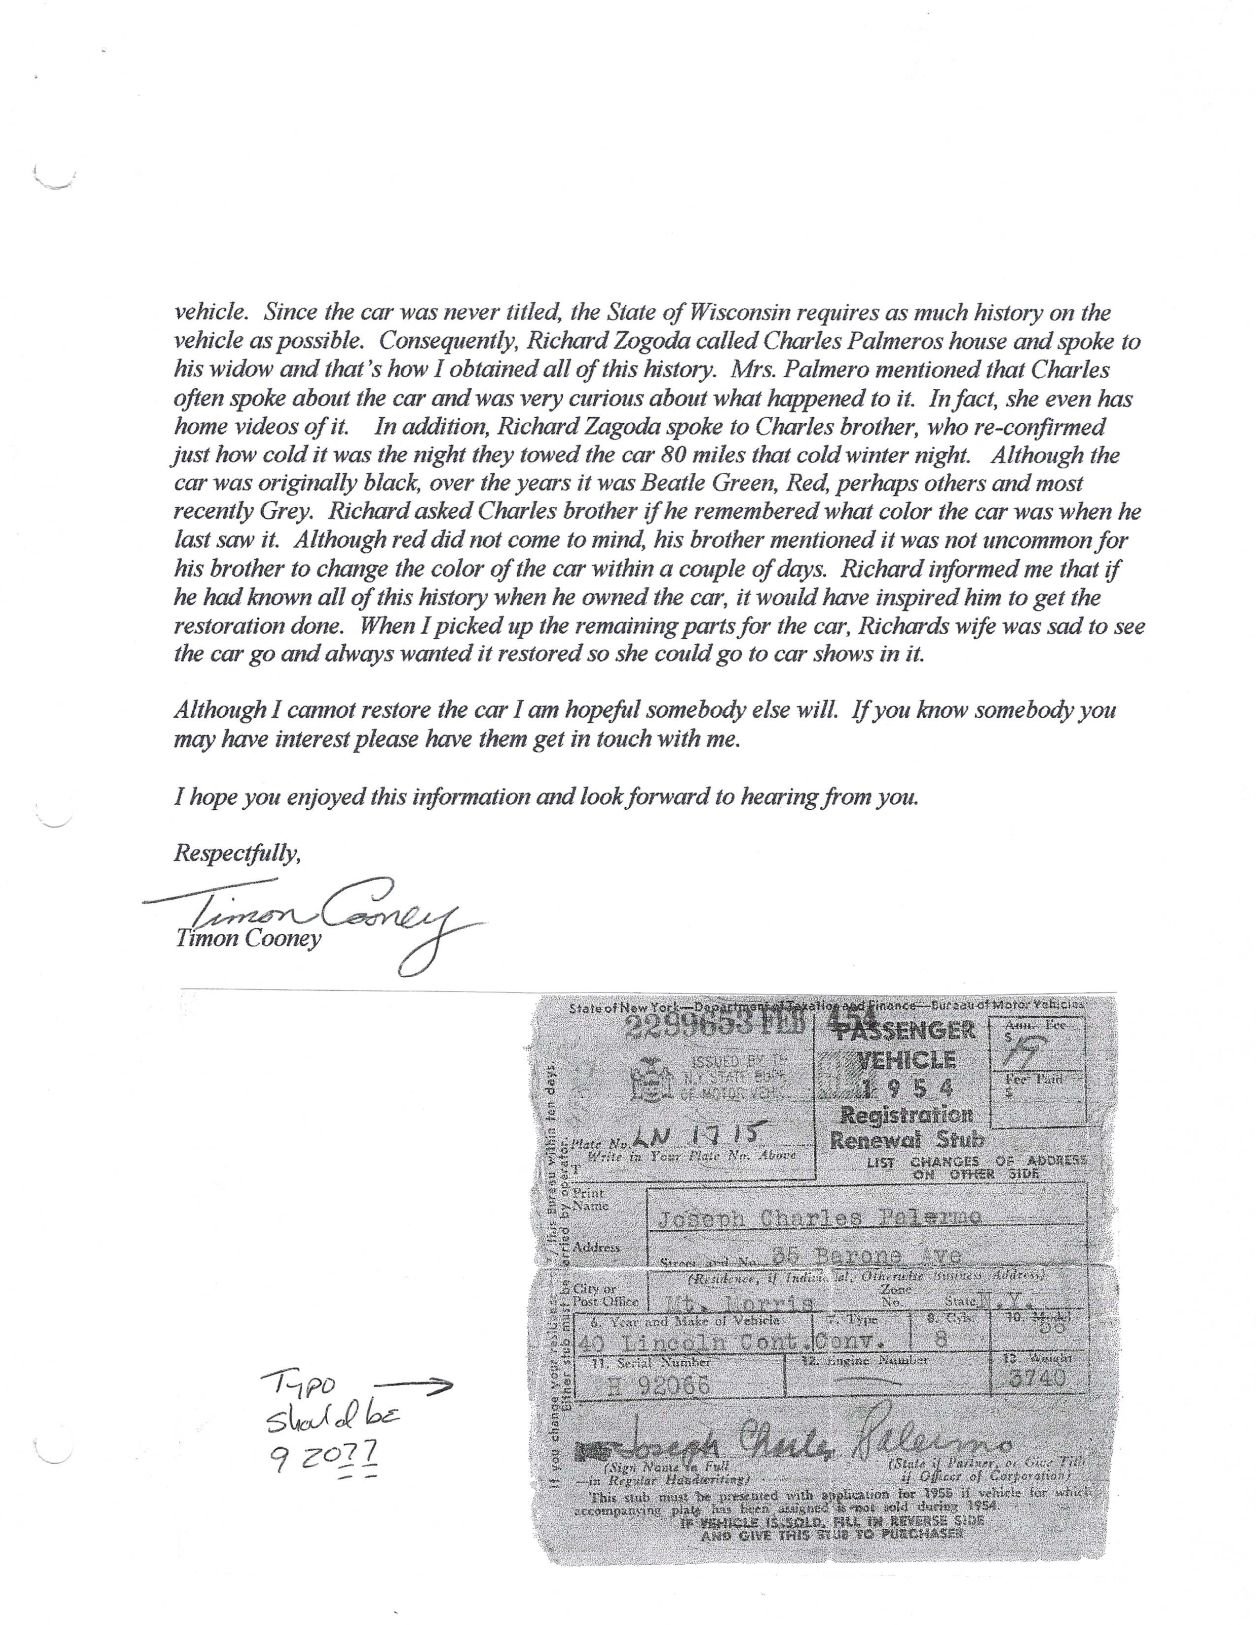 vehicle. Since the car was never titled, the State of Wisconsin requires as much history on the
vehicle as possible. Consequently, Richard Zogoda called Charles Palmeros house and spoke to
his widow and that's how I obtained all of this history. Mrs. Palmero mentioned that Charles
often spoke about the car and was very curious about what happened to it. In fact, she even has
home videos of it. In addition, Richard Zagoda spoke to Charles brother, who re-confirmed
just how cold it was the night they towed the car 80 miles that cold winter night. Although the
car was originally black, over the years it was Beatle Green, Red, perhaps others and most
recently Grey. Richard asked Charles brother if he remembered what color the car was when he
last saw it. Although red did not come to mind, his brother mentioned it was not uncommon for
his brother to change the color of the car within a couple of days. Richard informed me that if
he had known all of this history when he owned the car, it would have inspired him to get the
restoration done. When I picked up the remaining parts for the car, Richards wife was sad to see
the car go and always wanted it restored so she could go to car shows in it.
Although I cannot restore the car I am hopeful somebody else will. If you know somebody you
may have interest please have them get in touch with me.
I hope you enjoyed this information and look forward to hearing from you.
Respectfully,
Timon Cooney
Timon Cooney
State of New York—Department of Taxation and Finance—Bureau of Motor Vehicles
2299653 FEB 454
PASSENGER
VEHICLE
1954
Registration
Renewal Stub
LIST CHANGES OF ADDRESS
ON OTHER SIDE
Ann. Fee
$ 19
Fee Paid
$
ISSUED BY TH
N.Y. STATE BUR
OF MOTOR VEH.
Plate No. LN 1715
Write in Your Plate No. Above
Print
Name
Joseph Charles Palermo
Address
Street and No. 35 Barone Ave
(Residence, if Individual, Otherwise Business Address)
City or
Post Office
Mt. Morris
Zone
No.
State N.Y.
6. Year and Make of Vehicle
7. Type
8. Cyls.
10. Model
40 Lincoln Cont. Conv. 8 56
11. Serial Number
12. Engine Number
13. Weight
H 92066
3740
Joseph Charles Palermo
(Sign Name in Full
—in Regular Handwriting)
(State if Partner, or Give Title
if Officer of Corporation)
This stub must be presented with application for 1955 if vehicle for which
accompanying plate has been assigned is not sold during 1954.
IF VEHICLE IS SOLD, FILL IN REVERSE SIDE
AND GIVE THIS STUB TO PURCHASER
If you change your residence this Bureau within ten days.
Either stub must be carried by operator.
Typo
should be
92077